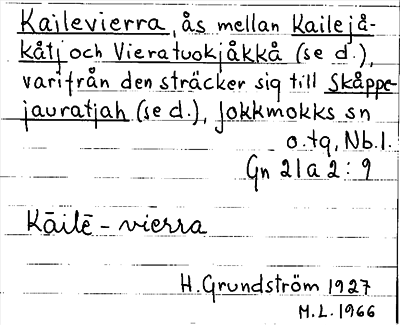 Kailevierra, ås mellan Kailejå-
kåtj och Vieratuokjåkkå (se d.),
varifrån den sträcker sig till Skåppe-
jauratjah (se d.), Jokkmokks sn
o. tg, Nb. l.
Gn 21a 2:9
Kāilē - vierra
H. Grundström 1927
M.L. 1966